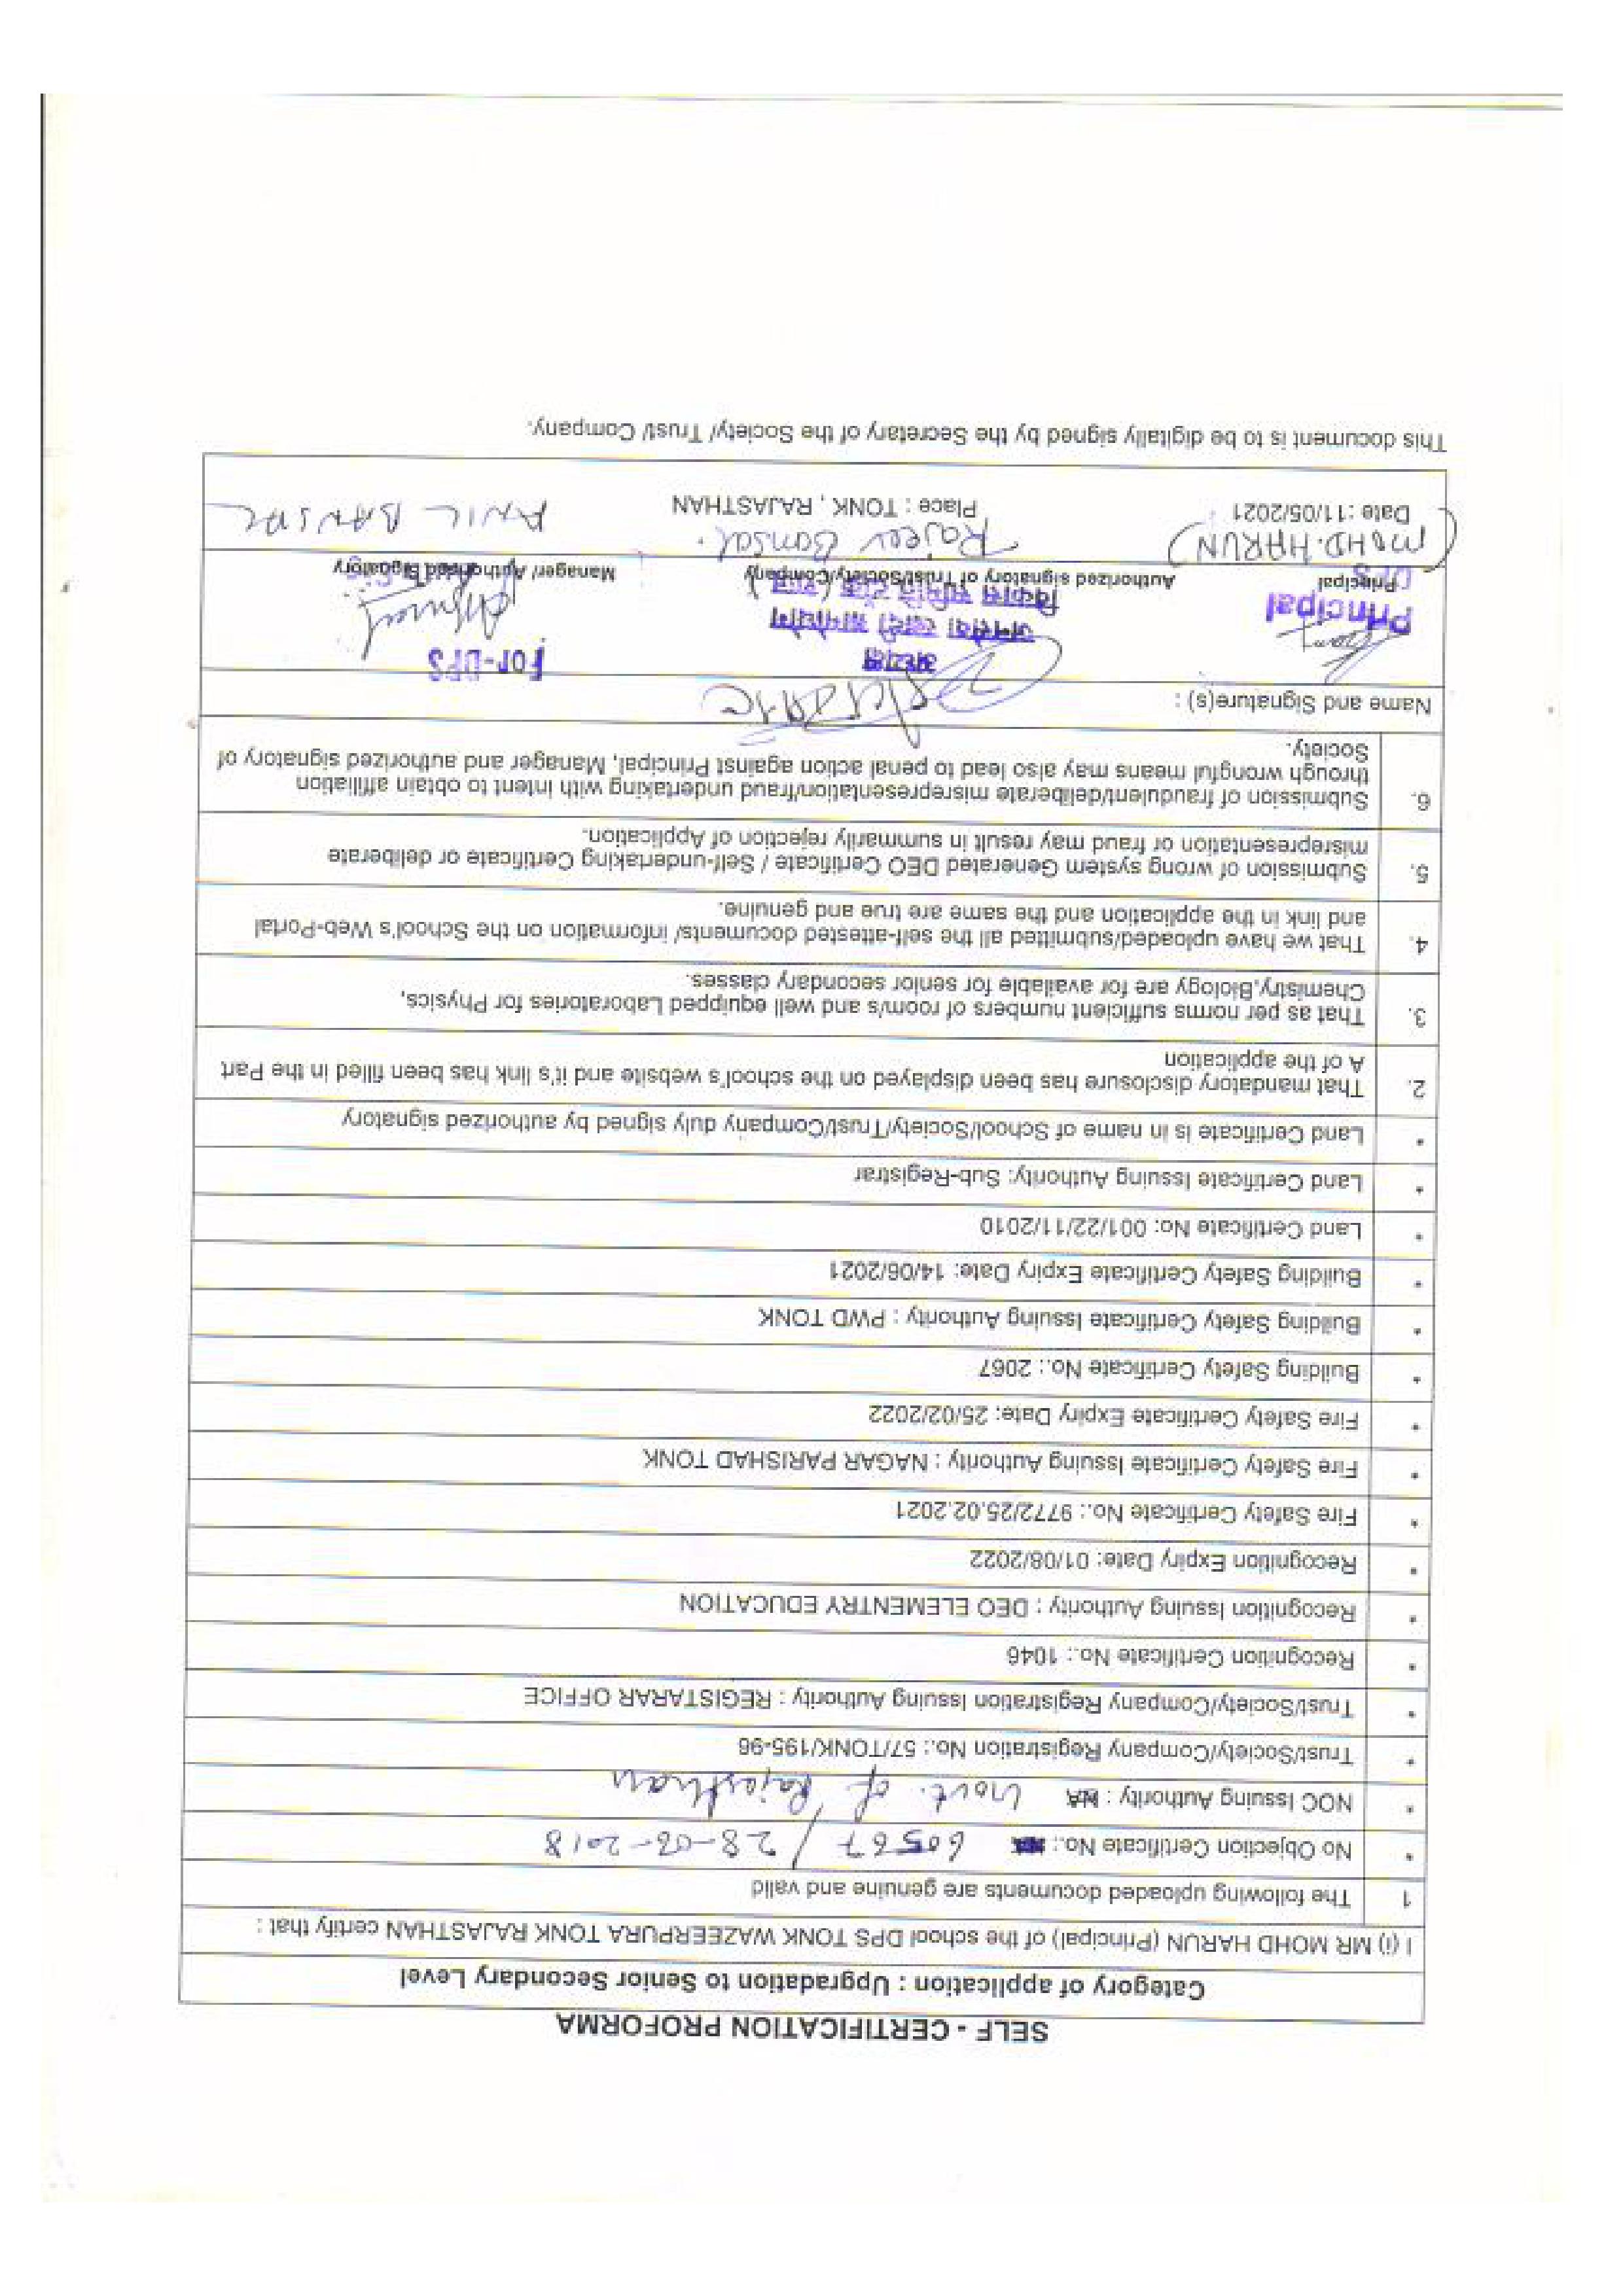 SELF - CERTIFICATION PROFORMA
Category of application : Upgradation to Senior Secondary Level
I (i) MR MOHD HARUN (Principal) of the school DPS TONK WAZEERPURA TONK RAJASTHAN certify that :
1 The following uploaded documents are genuine and valid
* No Objection Certificate No.: 60567 / 28-08-2018
* NOC Issuing Authority : NA Govt. of Rajasthan
* Trust/Society/Company Registration No.: 57/TONK/195-96
* Trust/Society/Company Registration Issuing Authority : REGISTARAR OFFICE
* Recognition Certificate No.: 1046
* Recognition Issuing Authority : DEO ELEMENTRY EDUCATION
* Recognition Expiry Date: 01/08/2022
* Fire Safety Certificate No.: 9772/25.02.2021
* Fire Safety Certificate Issuing Authority : NAGAR PARISHAD TONK
* Fire Safety Certificate Expiry Date: 25/02/2022
* Building Safety Certificate No.: 2067
* Building Safety Certificate Issuing Authority : PWD TONK
* Building Safety Certificate Expiry Date: 14/06/2021
* Land Certificate No: 001/22/11/2010
* Land Certificate Issuing Authority: Sub-Registrar
* Land Certificate is in name of School/Society/Trust/Company duly signed by authorized signatory
2. That mandatory disclosure has been displayed on the school's website and it's link has been filled in the Part
A of the application
3. That as per norms sufficient numbers of room/s and well equipped Laboratories for Physics,
Chemistry,Biology are for available for senior secondary classes.
4. That we have uploaded/submitted all the self-attested documents/ information on the School's Web-Portal
and link in the application and the same are true and genuine.
5. Submission of wrong system Generated DEO Certificate / Self-undertaking Certificate or deliberate
misrepresentation or fraud may result in summarily rejection of Application.
6. Submission of fraudulent/deliberate misrepresentation/fraud undertaking with intent to obtain affiliation
through wrongful means may also lead to penal action against Principal, Manager and authorized signatory of
Society.
Name and Signature(s) :
For-DPS
Principal
विकास समिति टोंक (राज.)
Principal Authorized signatory of Trust/Society/Company Manager/ Authorised Signatory
DPS
(MOHD. HARUN) Rajeev Bansal. ANIL BANSAL
Date : 11/05/2021 Place : TONK , RAJASTHAN
This document is to be digitally signed by the Secretary of the Society/ Trust/ Company.